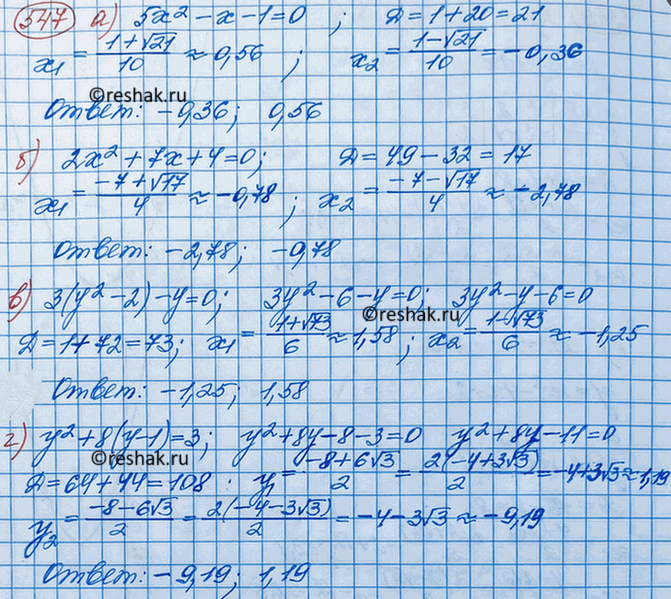 547 а) 5x² - x - 1 = 0 ; D = 1 + 20 = 21
x₁ = (1+√21)/10 ≈ 0,56 ; x₂ = (1-√21)/10 = -0,36
©reshak.ru
Ответ: -0,36; 0,56
б) 2x² + 7x + 4 = 0; D = 49 - 32 = 17
x₁ = (-7+√17)/4 ≈ -0,78 ; x₂ = (-7-√17)/4 ≈ -2,78
Ответ: -2,78; -0,78
в) 3(y² - 2) - y = 0; 3y² - 6 - y = 0; 3y² - y - 6 = 0
©reshak.ru
D = 1 + 72 = 73; x₁ = (1+√73)/6 ≈ 1,58 ; x₂ = (1-√73)/6 ≈ -1,25
Ответ: -1,25; 1,58
г) y² + 8(y - 1) = 3; y² + 8y - 8 - 3 = 0 y² + 8y - 11 = 0
©reshak.ru
D = 64 + 44 = 108 . y₁ = (-8+6√3)/2 = 2(-4+3√3)/2 = -4+3√3 ≈ 1,19
y₂ = (-8-6√3)/2 = 2(-4-3√3)/2 = -4-3√3 ≈ -9,19
Ответ: -9,19; 1,19